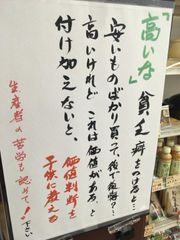 「高いな」
貧乏癖をつけると…
安いものばかり買って、後で後悔?…
高いけれど これは価値がある。と
付け加えないと、
価値判断を
子供に教える
生産者の苦労も認めて!下さい